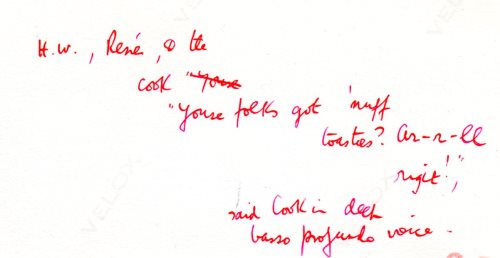 H.W., Renée, & the
cook "Youse
"Youse folks got 'nuff
toasties? Ar-r-ll
right!",
said Cook in deep
basso profundo voice.
VELOX